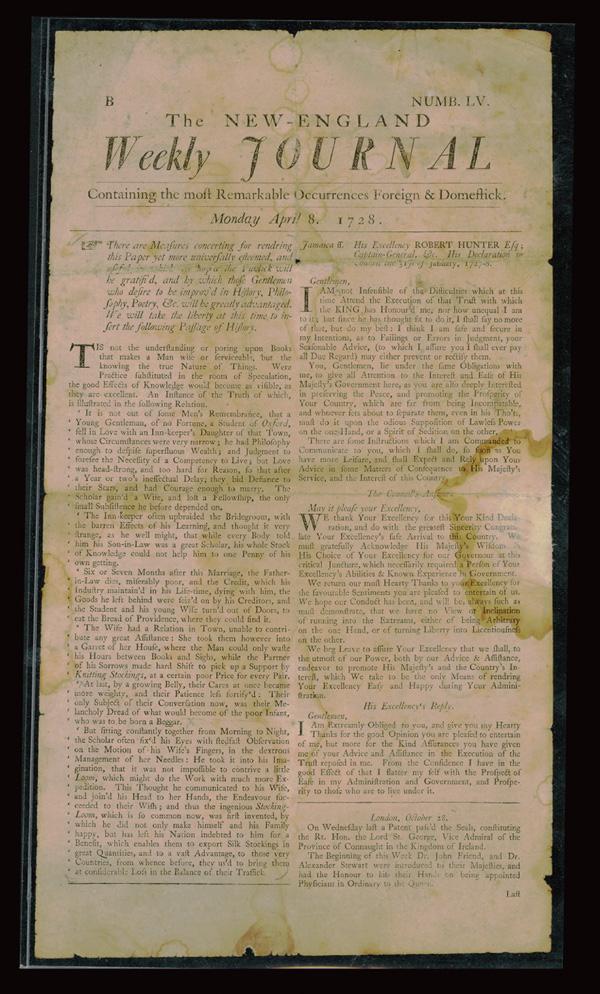 B
NUMB. LV.
The NEW-ENGLAND
Weekly JOURNAL
Containing the moſt Remarkable Occurrences Foreign & Domeſtick.
Monday April 8. 1728.
There are Meaſures concerting for rendring
this Paper yet more univerſally eſteemed, and
the Publick will
be gratifi'd, and by which thoſe Gentlemen
who deſire to be improv'd in Hiſtory, Philo-
ſophy, Poetry, &c. will be greatly advantaged.
We will take the liberty at this time to in-
ſert the following Paſſage of Hiſtory.
TIS not the underſtanding or poring upon Books
that makes a Man wiſe or ſerviceable, but the
knowing the true Nature of Things. Were
Practice ſubſtituted in the room of Speculation,
the good Effects of Knowledge would become as viſible, as
they are excellent. An Inſtance of the Truth of which,
is illuſtrated in the following Relation.
‘ It is not out of ſome Men's Remembrance, that a
‘ Young Gentleman, of no Fortune, a Student of Oxford,
‘ fell in Love with an Inn-keeper's Daughter of that Town,
‘ whoſe Circumſtances were very narrow; he had Philoſophy
‘ enough to deſpiſe ſuperfluous Wealth; and Judgment to
‘ foreſee the Neceſſity of a Competency to Live; but Love
‘ was head-ſtrong, and too hard for Reaſon, ſo that after
‘ a Year or two's ineffectual Delay; they bid Defiance to
‘ their Stars, and had Courage enough to marry. The
‘ Scholar gain'd a Wife, and loſt a Fellowſhip, the only
‘ ſmall Subſiſtence he before depended on.
‘ The Inn-keeper often upbraided the Bridegroom, with
‘ the barren Effects of his Learning, and thought it very
‘ ſtrange, as he well might, that while every Body told
‘ him his Son-in-Law was a great Scholar, his whole Stock
‘ of Knowledge could not help him to one Penny of his
‘ own getting.
‘ Six or Seven Months after this Marriage, the Father-
‘ in-Law dies, miſerably poor, and the Credit, which his
‘ Induſtry maintain'd in his Life-time, dying with him, the
‘ Goods he left behind were ſeiz'd on by his Creditors, and
‘ the Student and his young Wife turn'd out of Doors, to
‘ eat the Bread of Providence, where they could find it.
‘ The Wife had a Relation in Town, unable to contri-
‘ bute any great Aſſiſtance: She took them however into
‘ a Garret of her Houſe, where the Man could only waſte
‘ his Hours between Books and Sighs, while the Partner
‘ of his Sorrows made hard Shift to pick up a Support by
‘ Knitting Stockings, at a certain poor Price for every Pair.
‘ At laſt, by a growing Belly, their Cares at once became
‘ more weighty, and their Patience leſs fortify'd: Their
‘ only Subject of their Converſation now, was their Me-
‘ lancholy Dread of what would become of the poor Infant,
‘ who was to be born a Beggar.
‘ But ſitting conſtantly together from Morning to Night,
‘ the Scholar often fix'd his Eyes with ſtedfaſt Obſervation
‘ on the Motion of his Wife's Fingers, in the dextrous
‘ Management of her Needles: He took it into his Ima-
‘ gination, that it was not impoſſible to contrive a little
‘ Loom, which might do the Work with much more Ex-
‘ pedition. This Thought he communicated to his Wife,
‘ and join'd his Head to her Hands, the Endeavour ſuc-
‘ ceeded to their Wiſh; and thus the ingenious Stocking-
‘ Loom, which is ſo common now, was firſt invented, by
‘ which he did not only make himſelf and his Family
‘ happy, but has left his Nation indebted to him for a
‘ Benefit, which enables them to export Silk Stockings in
‘ great Quantities, and to a vaſt Advantage, to thoſe very
‘ Countries, from whence before, they us'd to bring them
‘ at conſiderable Loſs in the Balance of their Traffick.
Jamaica ſſ. His Excellency ROBERT HUNTER Eſq;
Captain-General, &c. His Declaration in
Council the 31ſt of January, 1727-8.
Gentlemen,
I AM not Inſenſible of the Difficulties which at this
time Attend the Execution of that Truſt with which
the KING has Honour'd me, nor how unequal I am
to it; but ſince he has thought fit to do it, I ſhall ſay no more
of that, but do my beſt: I think I am ſafe and ſecure in
my Intentions, as to Failings or Errors in Judgment, your
Seaſonable Advice, (to which I aſſure you I ſhall ever pay
all Due Regard) may either prevent or rectify them.
You, Gentlemen, lie under the ſame Obligations with
me, to give all Attention to the Intereſt and Eaſe of His
Majeſty's Government here, as you are alſo deeply Intereſted
in preſerving the Peace, and promoting the Proſperity of
Your Country, which are far from being Incompatible,
and whoever ſets about to ſeparate them, even in his Tho'ts,
muſt do it upon the odious Suppoſition of Lawleſs Power
on the one Hand, or a Spirit of Sedition on the other.
There are ſome Inſtructions which I am Commanded to
Communicate to you, which I ſhall do, ſo ſoon as You
have more Leiſure, and ſhall Expect and Rely upon Your
Advice in ſome Matters of Conſequence to His Majeſty's
Service, and the Intereſt of this Country.
The Council's Anſwer.
May it pleaſe your Excellency,
WE thank Your Excellency for this Your Kind Decla-
ration, and do with the greateſt Sincerity Congratu-
late Your Excellency's ſafe Arrival to this Country. We
muſt gratefully Acknowledge His Majeſty's Wiſdom in
His Choice of Your Excellency for our Governour at this
critical Juncture, which neceſſarily required a Perſon of Your
Excellency's Abilities & Known Experience in Government.
We return our moſt Hearty Thanks to your Excellency for
the favourable Sentiments you are pleaſed to entertain of us.
We hope our Conduct has been, and will be, always ſuch as
muſt demonſtrate, that we have no View or Inclination
of running into the Extreams, either of being Arbitrary
on the one Hand, or of turning Liberty into Licentiouſneſs
on the other.
We beg Leave to aſſure Your Excellency that we ſhall, to
the utmoſt of our Power, both by our Advice & Aſſiſtance,
endeavor to promote His Majeſty's and the Country's In-
tereſt, which We take to be the only Means of rendring
Your Excellency Eaſy and Happy during Your Admini-
ſtration.
His Excellency's Reply.
Gentlemen,
I Am Extreamly Obliged to you, and give you my Hearty
Thanks for the good Opinion you are pleaſed to entertain
of me, but more for the Kind Aſſurances you have given
me of your Advice and Aſſiſtance in the Execution of the
Truſt repoſed in me. From the Confidence I have in the
good Effect of that I flatter my ſelf with the Proſpect of
Eaſe in my Adminiſtration and Government, and Proſpe-
rity to thoſe who are to live under it.
London, October 28.
On Wedneſday laſt a Patent paſs'd the Seals, conſtituting
the Rt. Hon. the Lord St. George, Vice Admiral of the
Province of Connaught in the Kingdom of Ireland.
The Beginning of this Week Dr. John Friend, and Dr.
Alexander Stewart were introduced to their Majeſties, and
had the Honour to kiſs their Hands on being appointed
Phyſicians in Ordinary to the Queen.
Laſt